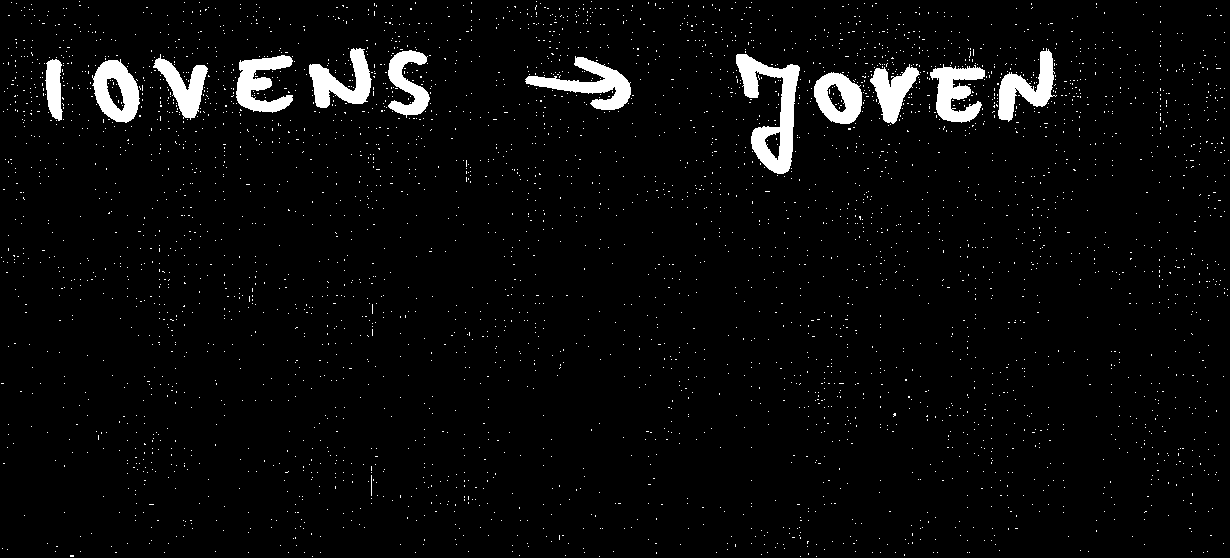 IOVENS → JOVEN